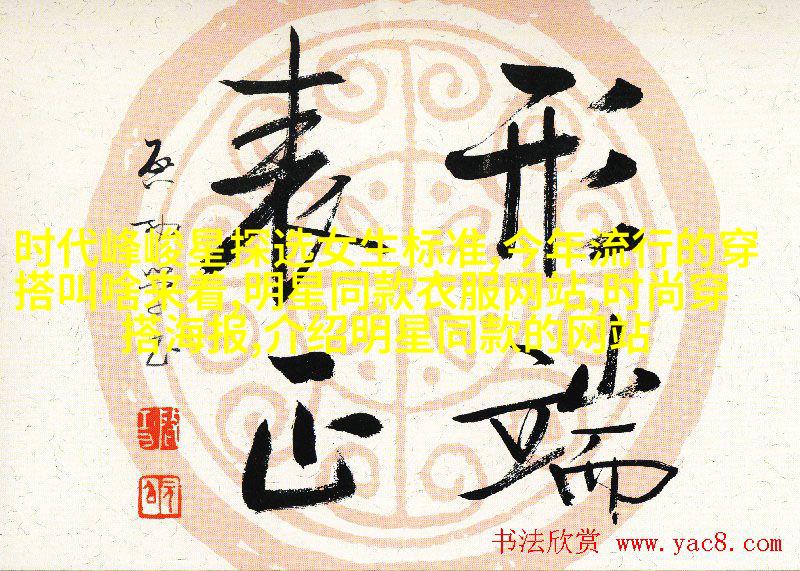 形端
表正
时代峰峻星探选女生标准,今年流行的穿
搭叫啥来着,明星同款衣服网站,时尚穿
搭海报,介绍明星同款的网站
书法欣赏 www.yac8.com